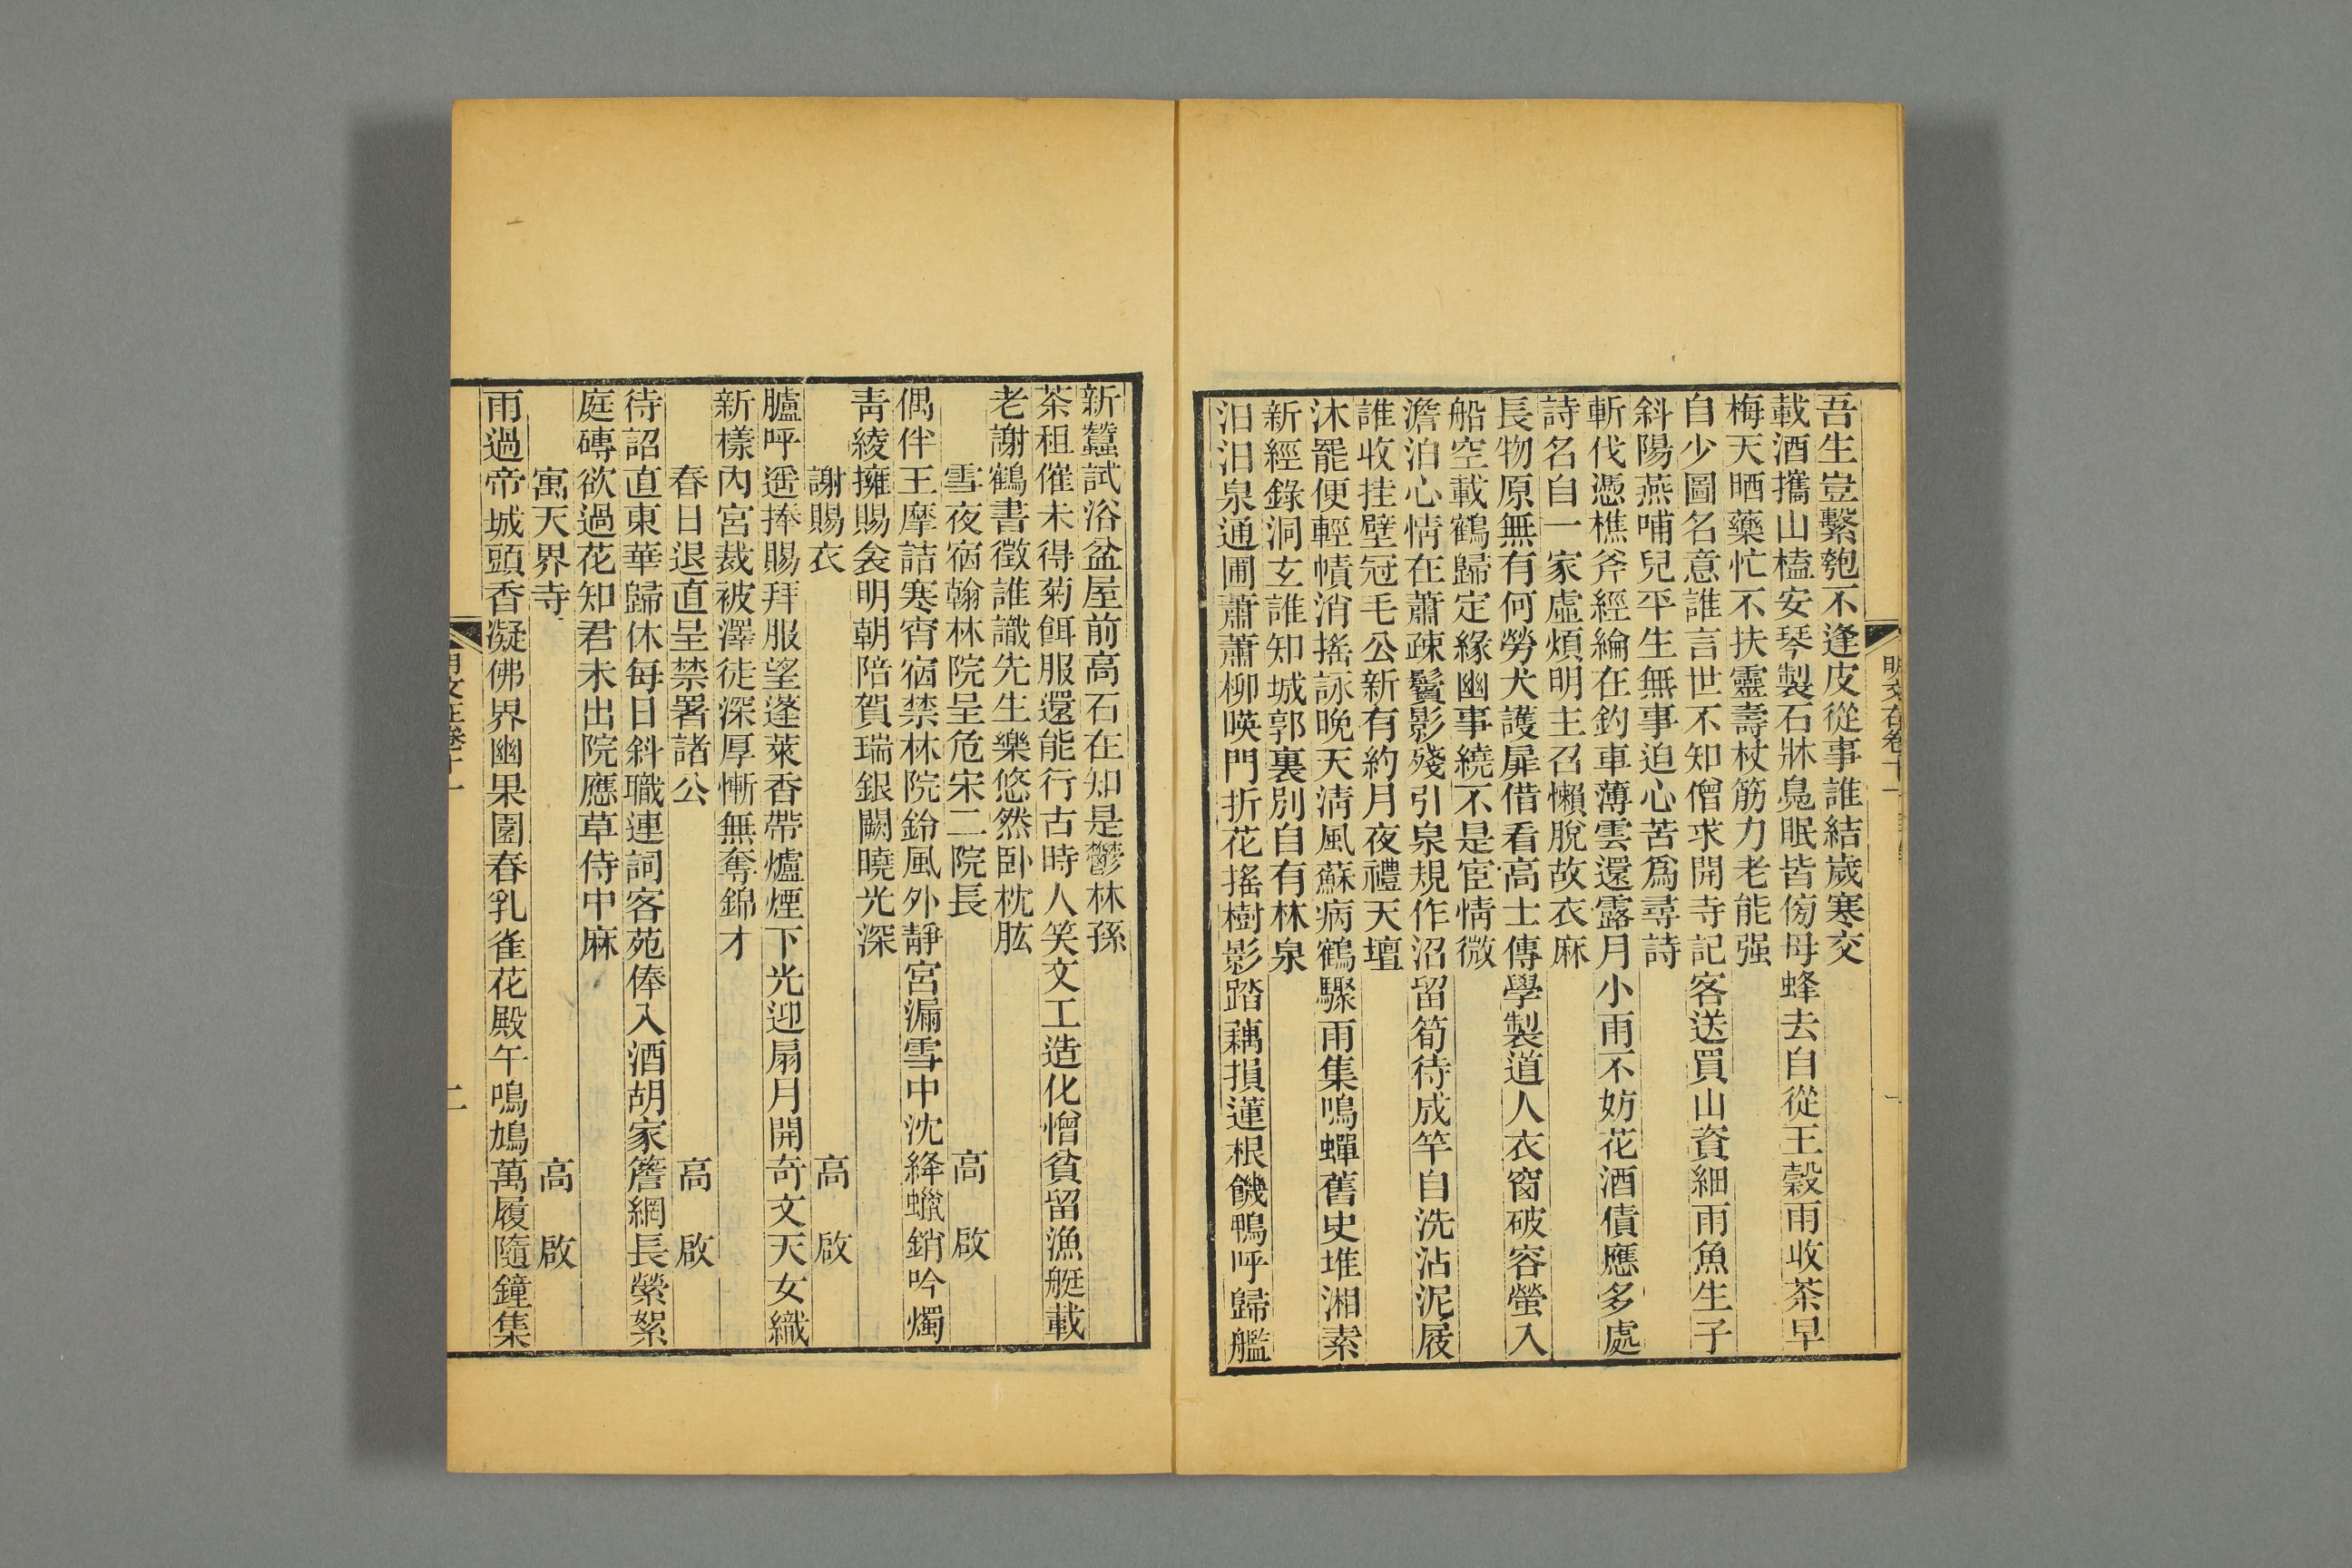 吾生豈繫匏不逢皮從事誰結歲寒交
載酒攜山榼安琴製石牀鳧眠皆傍母蜂去自從王穀雨收茶早
梅天晒藥忙不扶靈壽杖筋力老能强
自少圖名意誰言世不知僧求開寺記客送買山資細雨魚生子
斜陽燕哺兒平生無事迫心苦爲尋詩
斬伐憑樵斧經綸在釣車薄雲還露月小雨不妨花酒債應多處
詩名自一家虛煩明主召懶脫故衣麻
長物原無有何勞犬護扉借看高士傳學製道人衣窗破容螢入
船空載鶴歸定緣幽事繞不是宦情微
澹泊心情在蕭疎鬢影殘引泉規作沼留筍待成竿自洗沾泥屐
誰收挂壁冠毛公新有約月夜禮天壇
沐罷便輕幘消搖詠晚天淸風蘇病鶴驟雨集鳴蟬舊史堆湘素
新經錄洞玄誰知城郭裏別自有林泉
汨汨泉通圃蕭蕭柳暎門折花搖樹影踏藕損蓮根饑鴨呼歸艦
新蠶試浴盆屋前高石在知是鬱林孫
茶租催未得菊餌服還能行古時人笑文工造化憎貧留漁艇載
老謝鶴書徵誰識先生樂悠然卧枕肱
雪夜宿翰林院呈危宋二院長　高　啟
偶伴王摩詰寒宵宿禁林院鈴風外靜宮漏雪中沈絳蠟銷吟燭
靑綾擁賜衾明朝陪賀瑞銀闕曉光深
謝賜衣　高　啟
臚呼遥捧賜拜服望蓬萊香帶爐煙下光迎扇月開奇文天女織
新樣內宮裁被澤徒深厚慚無奪錦才
春日退直呈禁署諸公　高　啟
待詔直東華歸休每日斜職連詞客苑俸入酒胡家簷網長縈絮
庭磚欲過花知君未出院應草侍中麻
寓天界寺　高　啟
雨過帝城頭香凝佛界幽果園春乳雀花殿午鳴鳩萬履隨鐘集